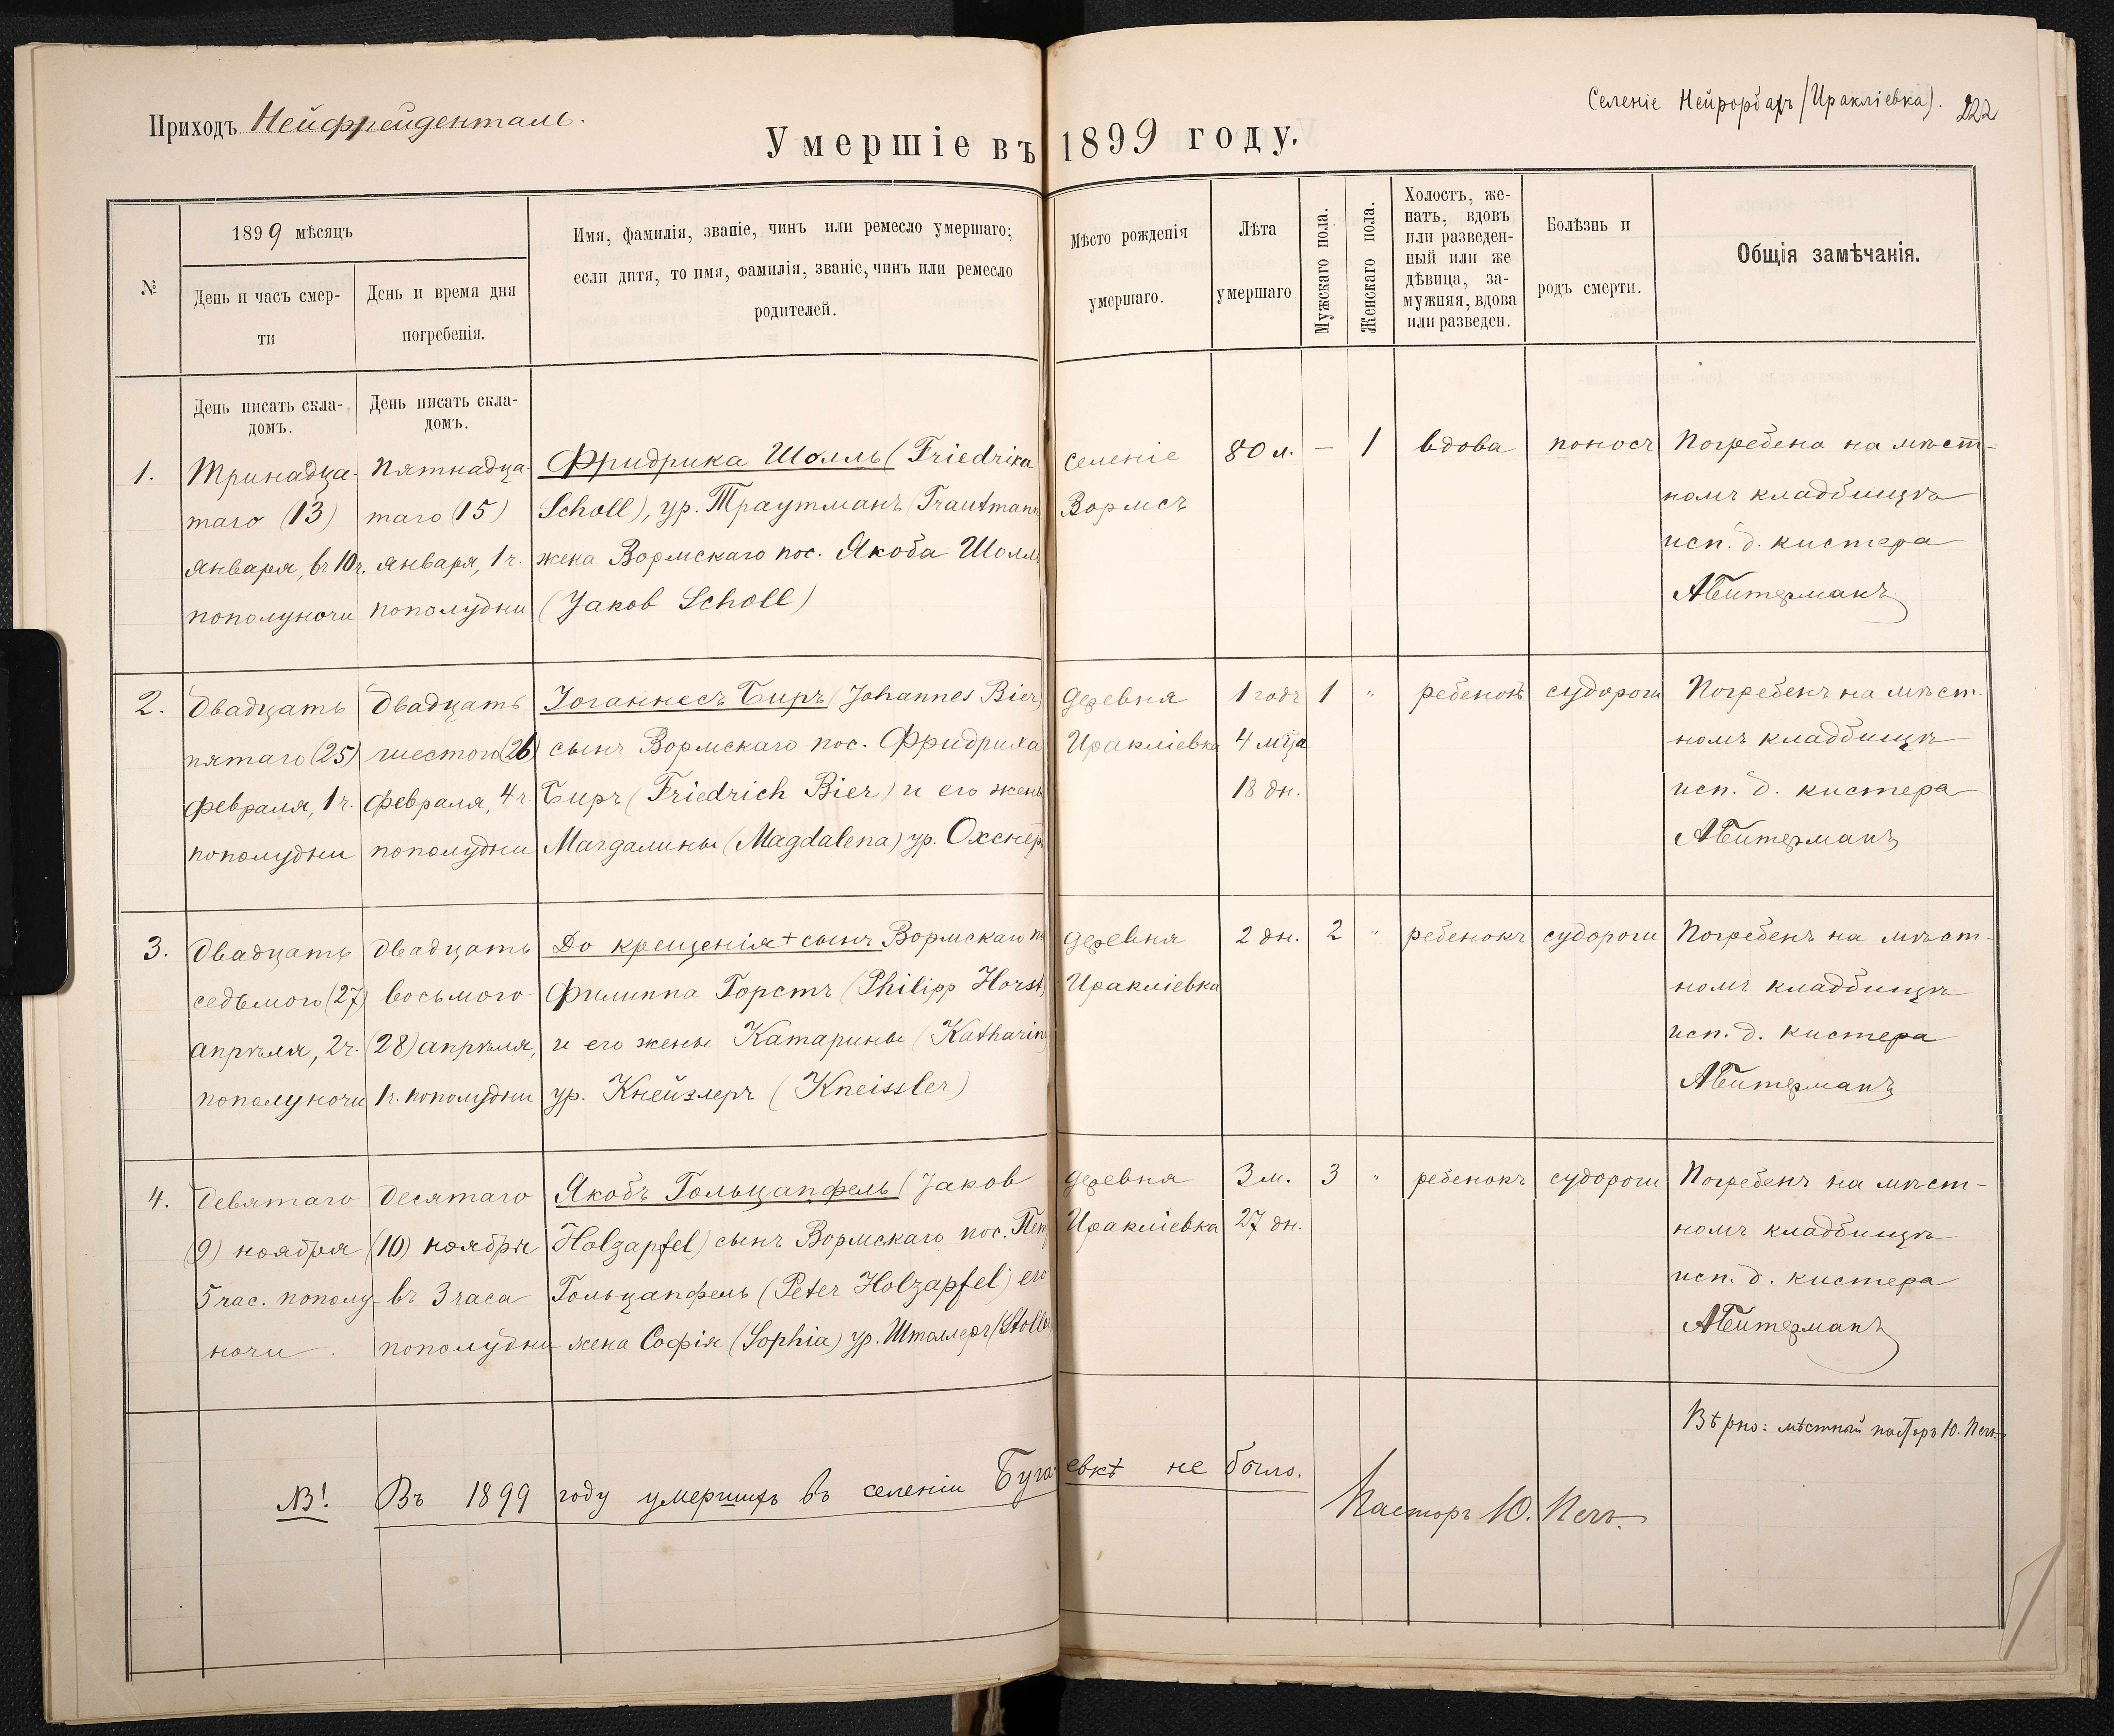 Приходъ Нейфрейденталь.
Селеніе Нейрорбахъ (Иракліевка). 222
Умершіе въ 1899 году.
№
1899 мѣсяцъ
День и часъ смер-
ти
День и время дня
погребенія.
Имя, фамилія, званіе, чинъ или ремесло умершаго;
если дитя, то имя, фамилія, званіе, чинъ или ремесло
родителей.
Мѣсто рожденія
умершаго.
Лѣта
умершаго
Мужскаго пола.
Женскаго пола.
Холостъ, же-
натъ, вдовъ
или разведен-
ный или же
дѣвица, за-
мужняя, вдова
или разведен.
Болѣзнь и
родъ смерти.
Общія замѣчанія.
День писать скла-
домъ.
День писать скла-
домъ.
1.
Тринадца-
таго (13)
января, въ 10 ч.
пополуночи
Пятнадца-
таго (15)
января, 1 ч.
пополудни
Фридрика Шолль (Friedrika
Scholl), ур. Траутманъ (Trautmann
жена Вормскаго пос. Якоба Шолль
(Jakob Scholl)
селеніе
Вормсъ
80 л.
—
1
вдова
поносъ
Погребена на мѣст-
номъ кладбищѣ
исп. д. кистера
АБитерманъ
2.
Двадцать
пятаго (25)
февраля, 1 ч.
пополудни
Двадцать
шестого (26)
февраля, 4 ч.
пополудни
Іоганнесъ Биръ (Johannes Bier)
сынъ Вормскаго пос. Фридриха
Биръ (Friedrich Bier) и его жены
Магдалины (Magdalena) ур. Охснеръ
деревня
Иракліевка
1 годъ
4 мца
18 дн.
1
"
ребенокъ
судороги
Погребенъ на мѣст-
номъ кладбищѣ
исп. д. кистера
АБитерманъ
3.
Двадцать
седьмого (27)
апрѣля, 2 ч.
пополуночи
Двадцать
восьмого
(28) апрѣля,
1 ч. пополудни
До крещенія + сынъ Вормскаго п
Филиппа Горстъ (Philipp Horst)
и его жены Катарины (Katharin
ур. Кнейзлеръ (Kneissler)
деревня
Иракліевка
2 дн.
2
"
ребенокъ
судороги
Погребенъ на мѣст-
номъ кладбищѣ
исп. д. кистера
АБитерманъ
4.
Девятаго
(9) ноября
5 час. пополу-
ночи.
Десятаго
(10) ноября
въ 3 часа
пополудни
Якобъ Гольцапфель (Jakob
Holzapfel) сынъ Вормскаго пос. Пет
Гольцапфель (Peter Holzapfel) его
жена Софія (Sophia) ур. Штоллеръ (Stolle
деревня
Иракліевка
3 м.
27 дн.
3
"
ребенокъ
судороги
Погребенъ на мѣст-
номъ кладбищѣ
исп. д. кистера
АБитерманъ
Вѣрно: мѣстный пасторъ Ю. Печъ.
NB! Въ 1899 году умершихъ въ селеніи Бугаевкѣ не было.
Пасторъ Ю. Печъ.